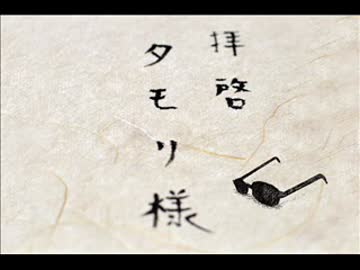 拝啓
タモリ様